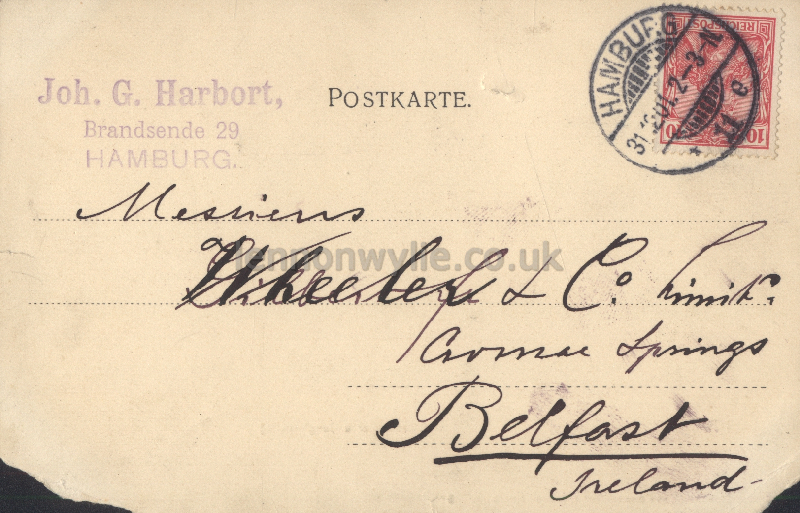 Joh. G. Harbort,
Brandsende 29
HAMBURG.
POSTKARTE.
HAMBURG
31.12.01. 2-3 N
* 11 e
REICHSPOST
10
Messieurs
Wheeler & Co. Limit.
Cromac Springs
Belfast
Ireland
lennonwylie.co.uk